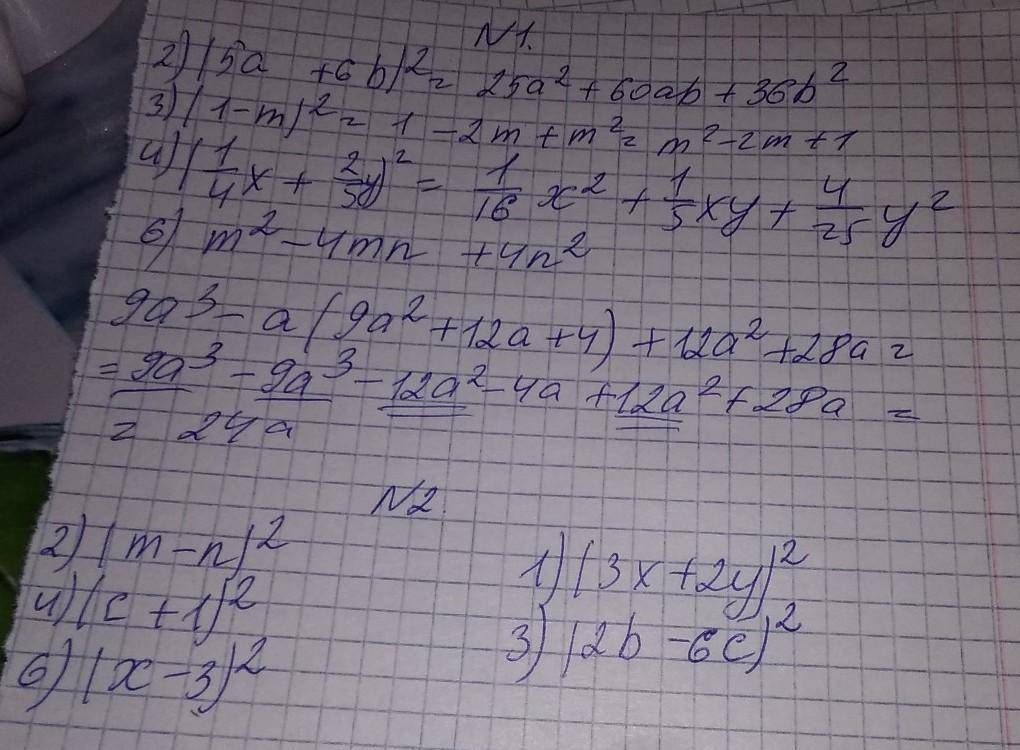 N1.
2) (5a +6b)² = 25a² + 60ab + 36b²
3) (1-m)² = 1 - 2m + m² = m² - 2m + 1
4) (1/4 x + 2/5 y)² = 1/16 x² + 1/5 xy + 4/25 y²
6) m² - 4mn + 4n²
9a³ - a (9a² + 12a + 4) + 12a² + 28a =
= 9a³ - 9a³ - 12a² - 4a + 12a² + 28a =
= 24a
N2.
2) (m - n)² 1) (3x + 2y)²
4) (c + 1)² 3) (2b - 6c)²
6) (x - 3)²